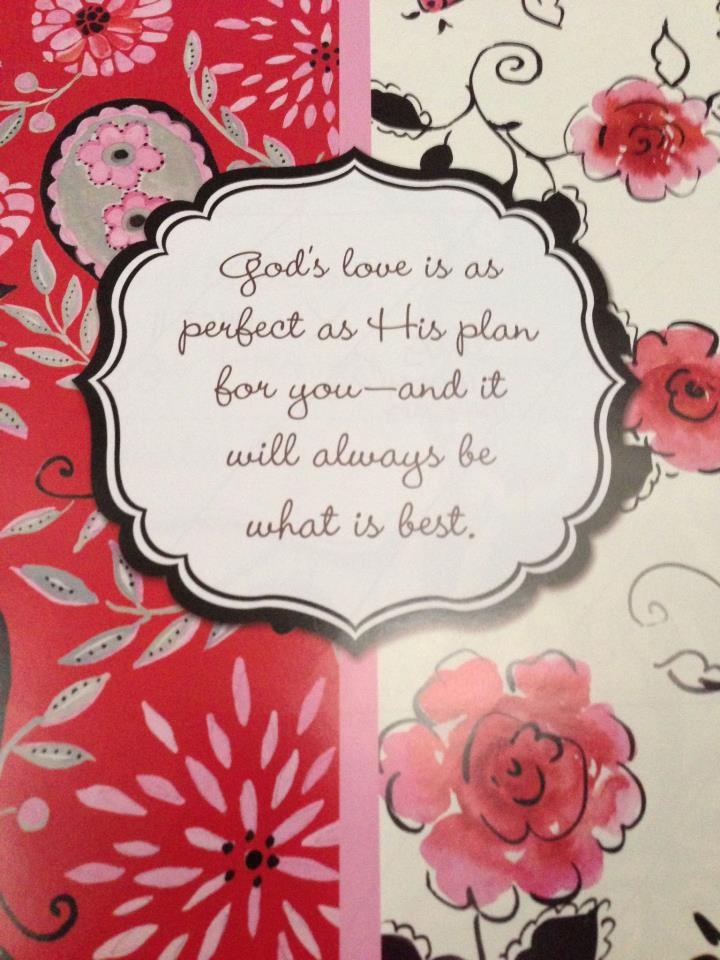 God's love is as
perfect as His plan
for you—and it
will always be
what is best.